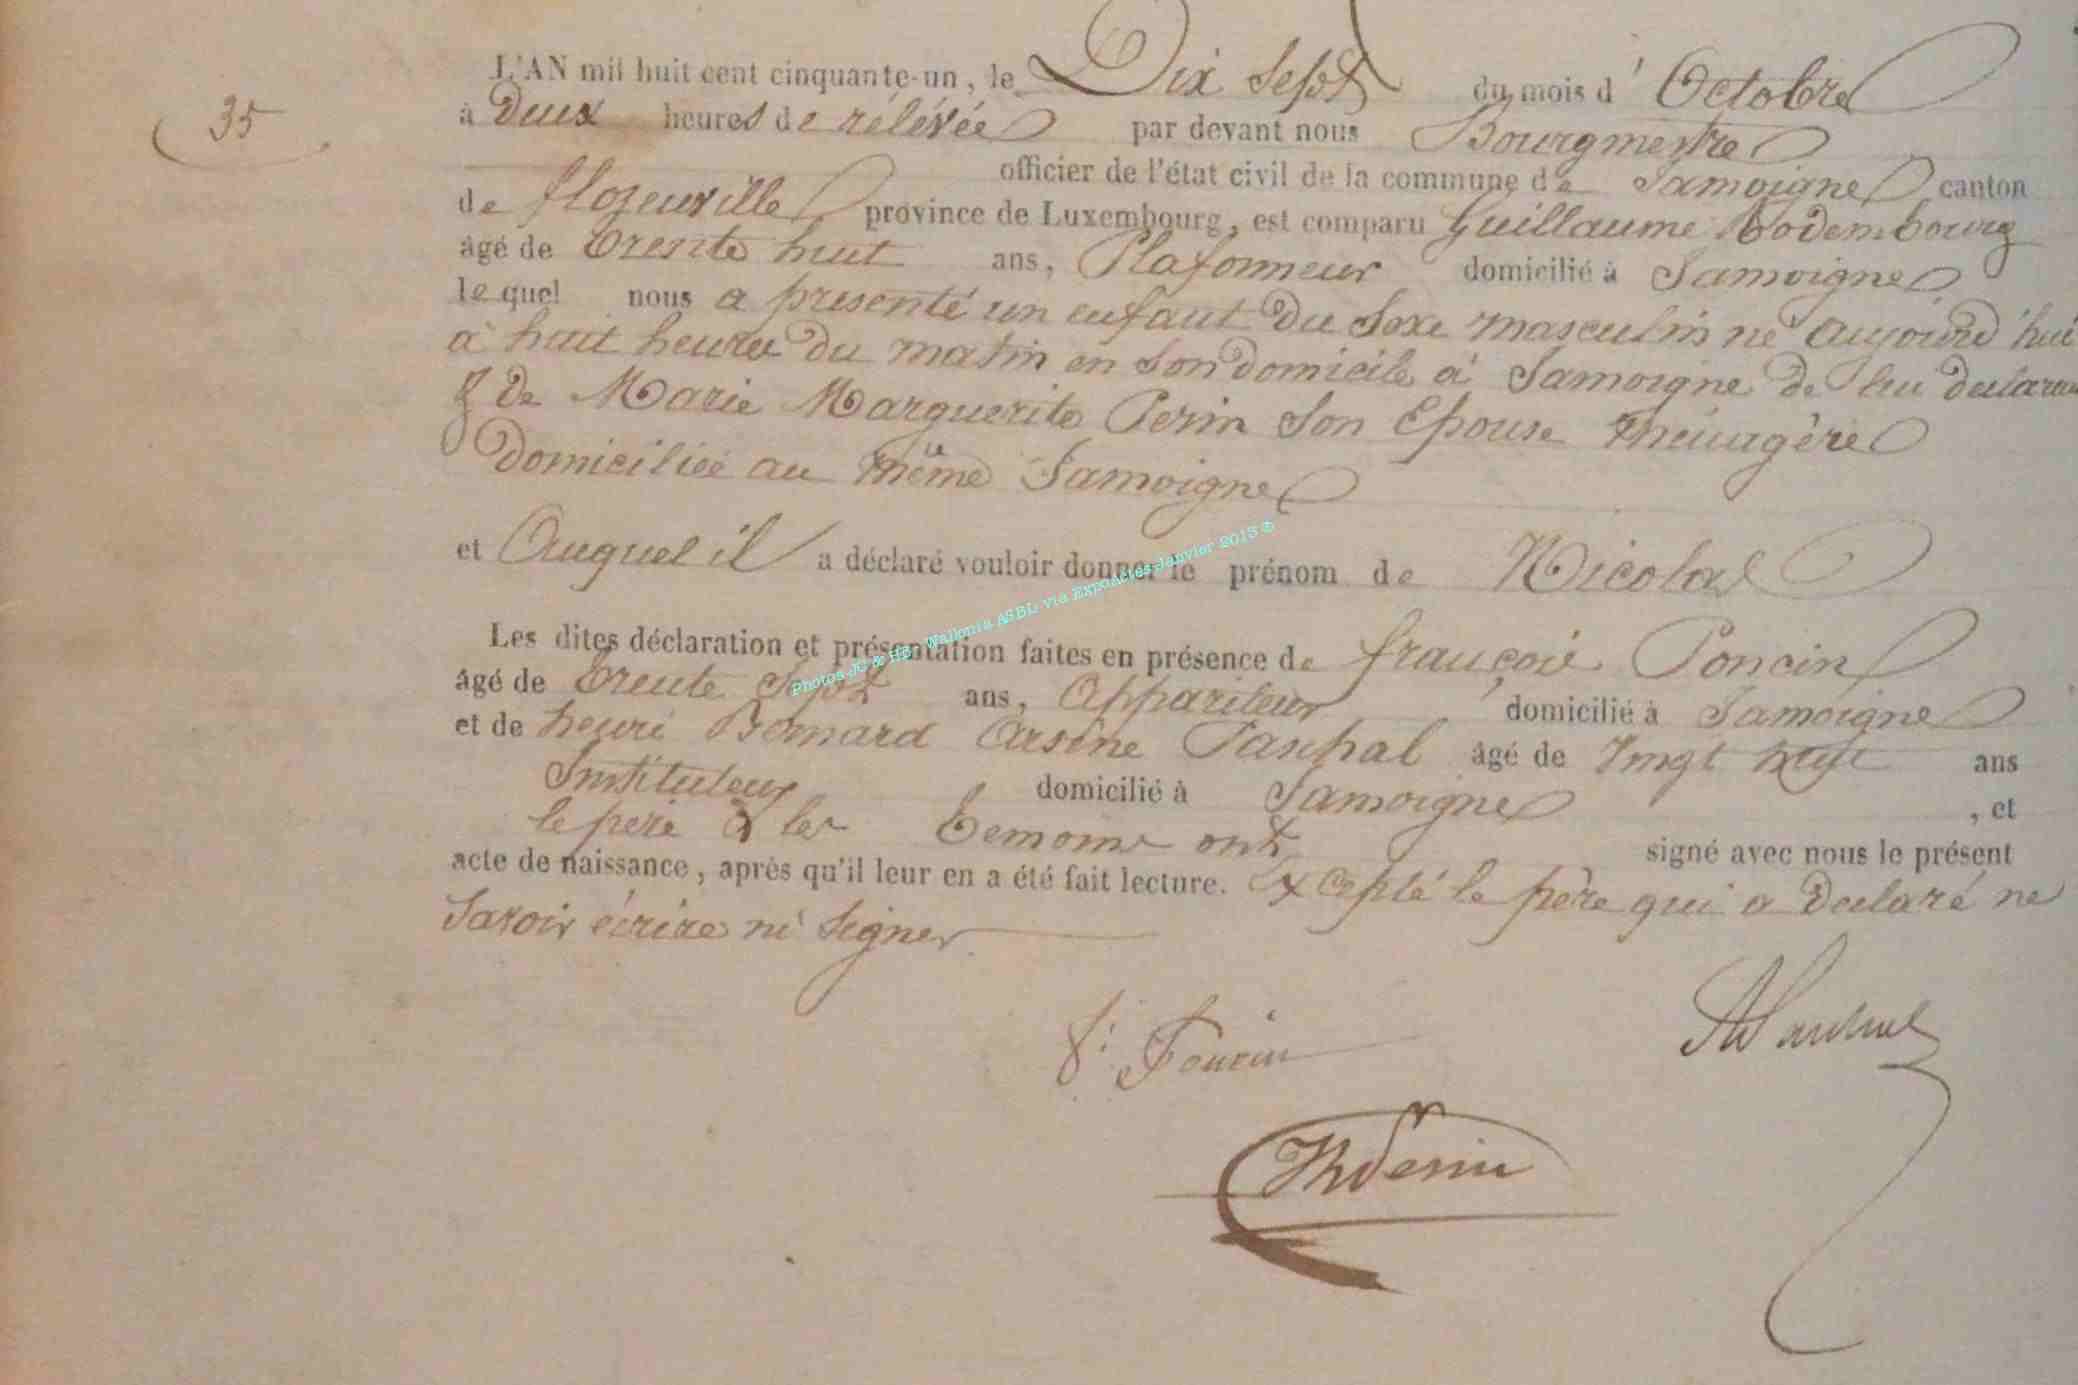 35
L'AN mil huit cent cinquante-un, le Dix Sept du mois d'Octobre
à Deux heures de rélévée par devant nous Bourgmestre
officier de l'état civil de la commune de Jamoigne canton
de florenville province de Luxembourg, est comparu Guillaume Bodembourg
âgé de trente huit ans, Plafonneur domicilié à Jamoigne
le quel nous a presenté un enfant Du Sexe masculin né aujourd'hui
à huit heures du matin en son domicile à Jamoigne de lui declarant
& de Marie Marguerite Perin Son Epouse ménagère
domiciliée au même Jamoigne
et Auquel il a déclaré vouloir donner le prénom de Nicolas
Les dites déclaration et présentation faites en présence de françois Poncin
âgé de trente Sept ans, Appariteur domicilié à Jamoigne
et de henri Bernard Arsène Paschal âgé de Vingt huit ans
Instituteur domicilié à Jamoigne, et
le père & les témoins ont signé avec nous le présent
acte de naissance, après qu'il leur en a été fait lecture. Excepté le père qui a declaré ne
Savoir écrire ni signer
f: Poncin
Paschal
Perin
Photos JC & HB: Wallonia ASBL via Expoactes Janvier 2013 ©